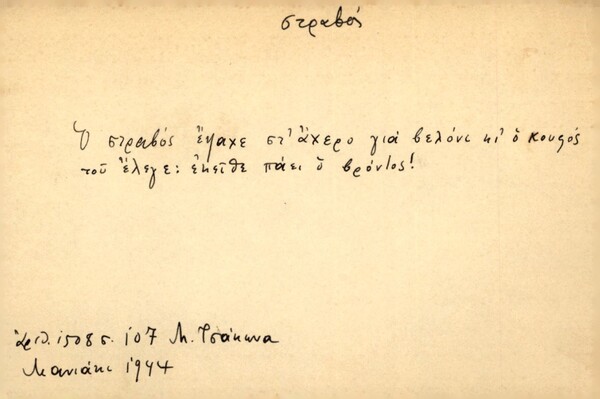 στραβός
Ὁ στραβός ἔψαχε στ' ἄχερο γιά βελόνι κι' ὁ κουφός
τοῦ ἔλεγε: ἐκεῖθε πάει ὁ βρόντος!
Ἀριθ. 1508 σ. 107 Μ. Τσάκωνα
Μανιάκι 1944